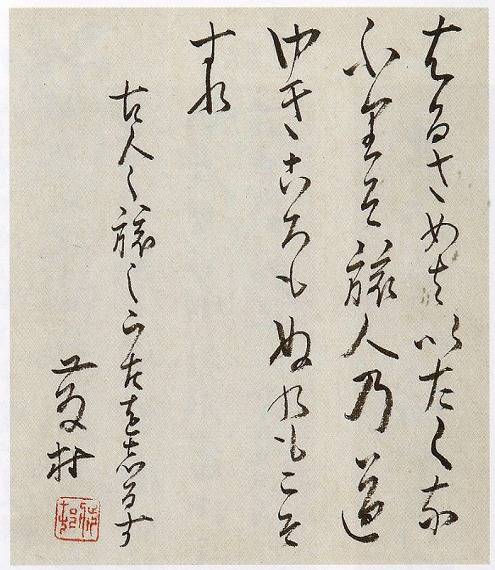 はるさめはいたくな
ふりそ旅人乃道
ゆきころもぬれもこそ
すれ
古人の旅のうたをしるす
藤村